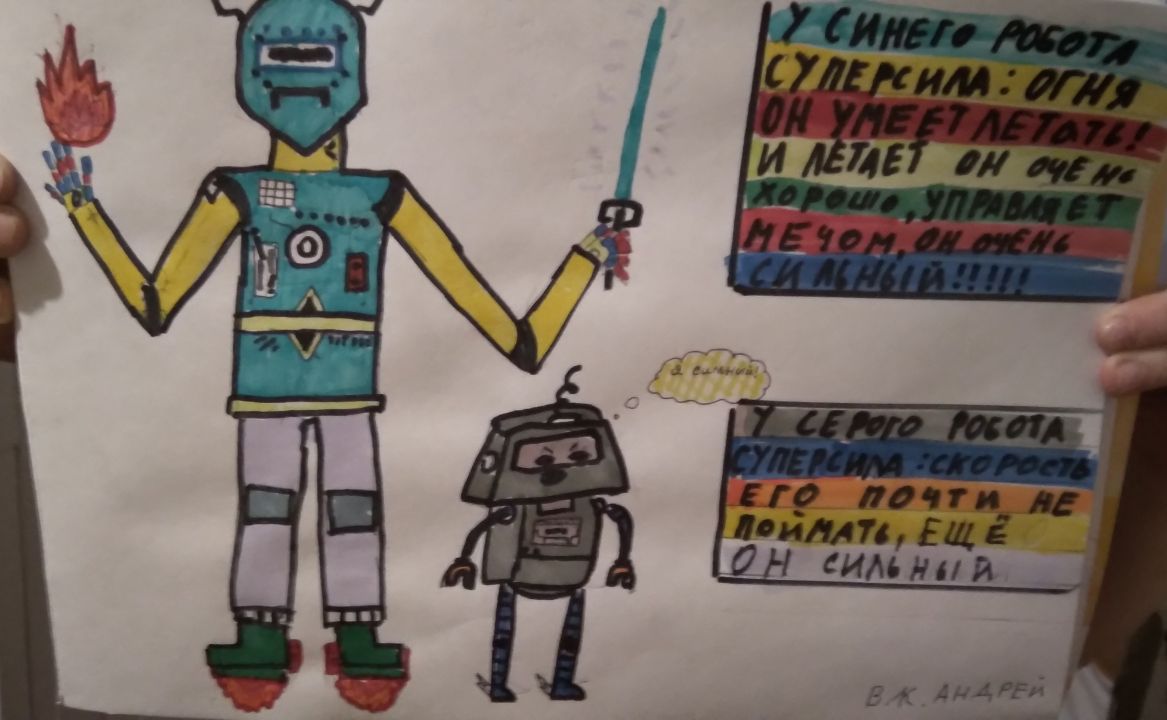 У СИНЕГО РОБОТА
СУПЕРСИЛА: ОГНЯ
ОН УМЕЕТ ЛЕТАТЬ!
И ЛЕТАЕТ ОН ОЧЕНЬ
ХОРОШО, УПРАВЛЯЕТ
МЕЧОМ, ОН ОЧЕНЬ
СИЛЬНЫЙ!!!!!
Я СИЛЬНЫЙ!
У СЕРОГО РОБОТА
СУПЕРСИЛА: СКОРОСТЬ
ЕГО ПОЧТИ НЕ
ПОЙМАТЬ, ЕЩЁ
ОН СИЛЬНЫЙ
В.К. АНДРЕЙ